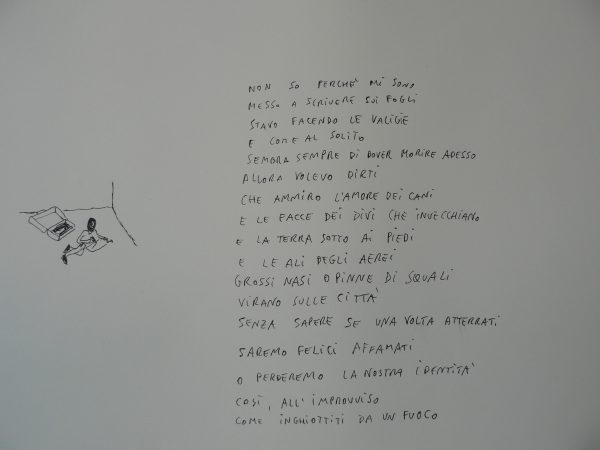 NON SO PERCHÈ MI SONO
MESSO A SCRIVERE SUI FOGLI
STAVO FACENDO LE VALIGIE
E COME AL SOLITO
SEMBRA SEMPRE DI DOVER MORIRE ADESSO
ALLORA VOLEVO DIRTI
CHE AMMIRO L'AMORE DEI CANI
E LE FACCE DEI DIVI CHE INVECCHIANO
E LA TERRA SOTTO AI PIEDI
E LE ALI DEGLI AEREI
GROSSI NASI O PINNE DI SQUALI
VIRANO SULLE CITTÀ
SENZA SAPERE SE UNA VOLTA ATTERRATI
SAREMO FELICI AFFAMATI
O PERDEREMO LA NOSTRA IDENTITÀ
COSÌ, ALL'IMPROVVISO
COME INGHIOTTITI DA UN FUOCO